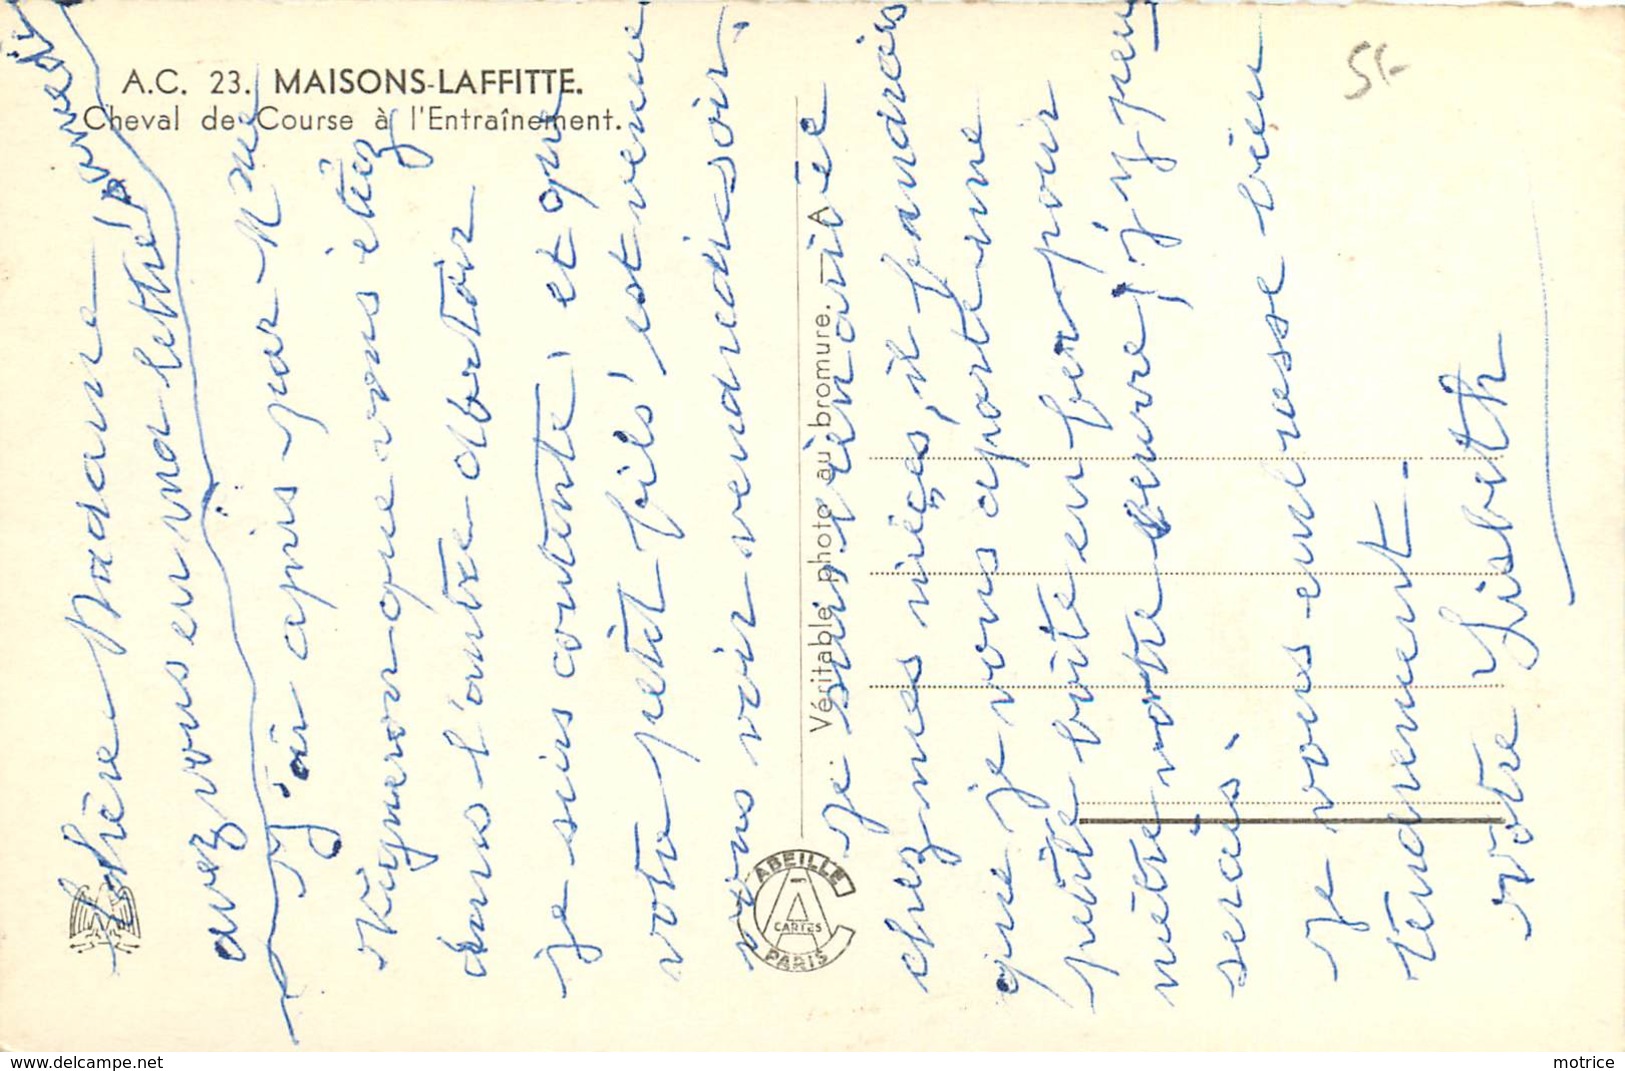 A.C. 23. MAISONS-LAFFITTE.
Cheval de Course à l'Entraînement.
5f-
Chère Madame
avez vous eu ma lettre
J'ai apris par Mme
que vous étiez
dans l'autre dortoir
je suis contente, et que
votre petit fils est venu
vous voir vendredi soir.
Je suis invitée
chez mes nièces, il faudrais
que je vous aporte une
petite boite en fer pour
mètre votre beurre, j'y peu
serais.
Je vous embrasse bien
tendrement.
Votre Lisbeth
Véritable photo au bromure. — A
ABEILLE
CARTES
PARIS
www.delcampe.net
motrice